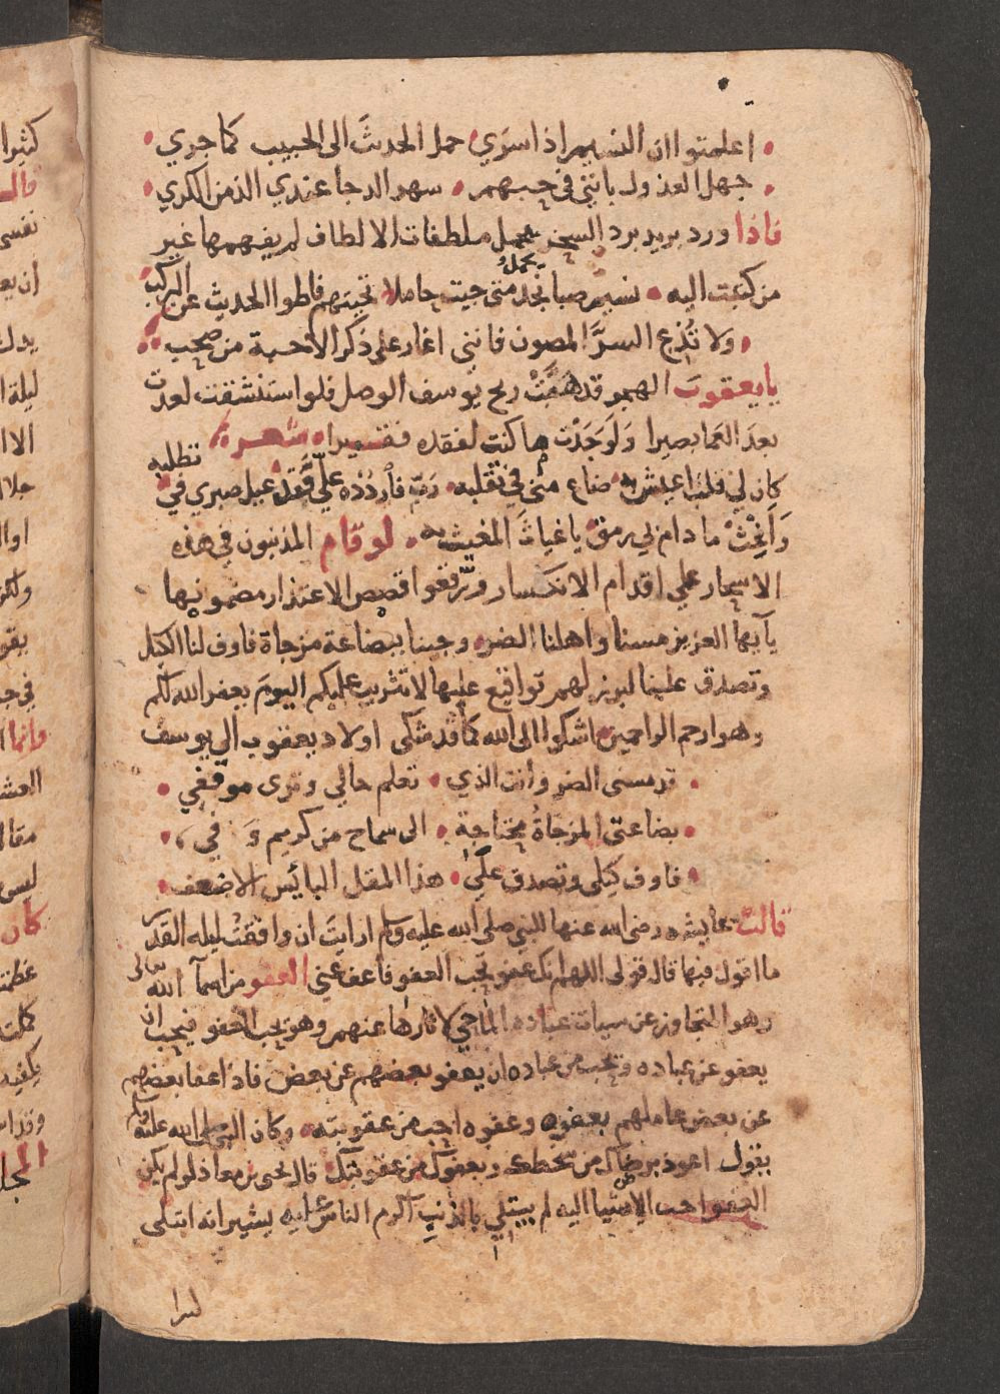 اعلمتوا ان النسيم اذا سرى حمل الحديث الى الحبيب كما جري
جهل العذول بانني في حبهم سهر الدجا عندي الذ من الكري
فاذا ورد بريد برد السحر يحمل ملطفات الالطاف لم يفهمها غير
من كتبت اليه نسيم صبا نجد متى جيت حاملا تحيتهم فاطوا الحديث عن الركب
ولا تذع السر المصون فانني اغار على ذكر الاحبة من صحب
يا يعقوب الهجر قد هبت ريح يوسف الوصل فلو استنشقت لعدت
بعد العما بصيرا ولوجدت ما كنت لفقده فقيرا شعر
كان لي قلب اعيش به ضاع مني في تقلبه رب فاردده علي فقد عيل صبري في تطلبه
واغث ما دام لي رمق يا غياث المغيث به لو قام المذنبون في هذه
الاسحار علي اقدام الانكسار ورفعوا قصص الاعتذار مضمونها
يايها العزيز مسنا واهلنا الضر وجينا ببضاعة مزجاة فاوف لنا الكيل
وتصدق علينا لبرز لهم تواقيع عليها لا تثريب عليكم اليوم يغفر الله لكم
وهو ارحم الراحمين اشكوا الى الله كما قد شكى اولاد يعقوب الي يوسف
قد مسنى الضر وانت الذي تعلم حالي وترى موقفي
بضاعتي المزجاة محتاجة الى سماح من كريم وفي
فاوف كيلى وتصدق علي هذا المقل البائس الاضعف
قالت عايشه رضى الله عنها للنبي صلى الله عليه وسلم ارايت ان وافقت ليله القدر
ما اقول فيها قال قولى اللهم انك عفو تحب العفو فاعف عني العفو من اسما الله تعالى
وهو المتجاوز عن سيات عباده الماحي لاثارها عنهم وهو يحب العفو فيحب ان
يعفو عن عباده ويحب من عباده ان يعفو بعضهم عن بعض فاذا عفا بعضهم
عن بعض عاملهم بعفوه وعفوه احب من عقوبته وكان النبي صلى الله عليه وسلم
يقول اعوذ برضاك من سخطك وبعفوك من عقوبتك قال يحى بن معاذ لو لم يكن
العفو احب الاشيا اليه لم يبتلي بالذنب اكرم الناس عليه يشير انه ابتلى